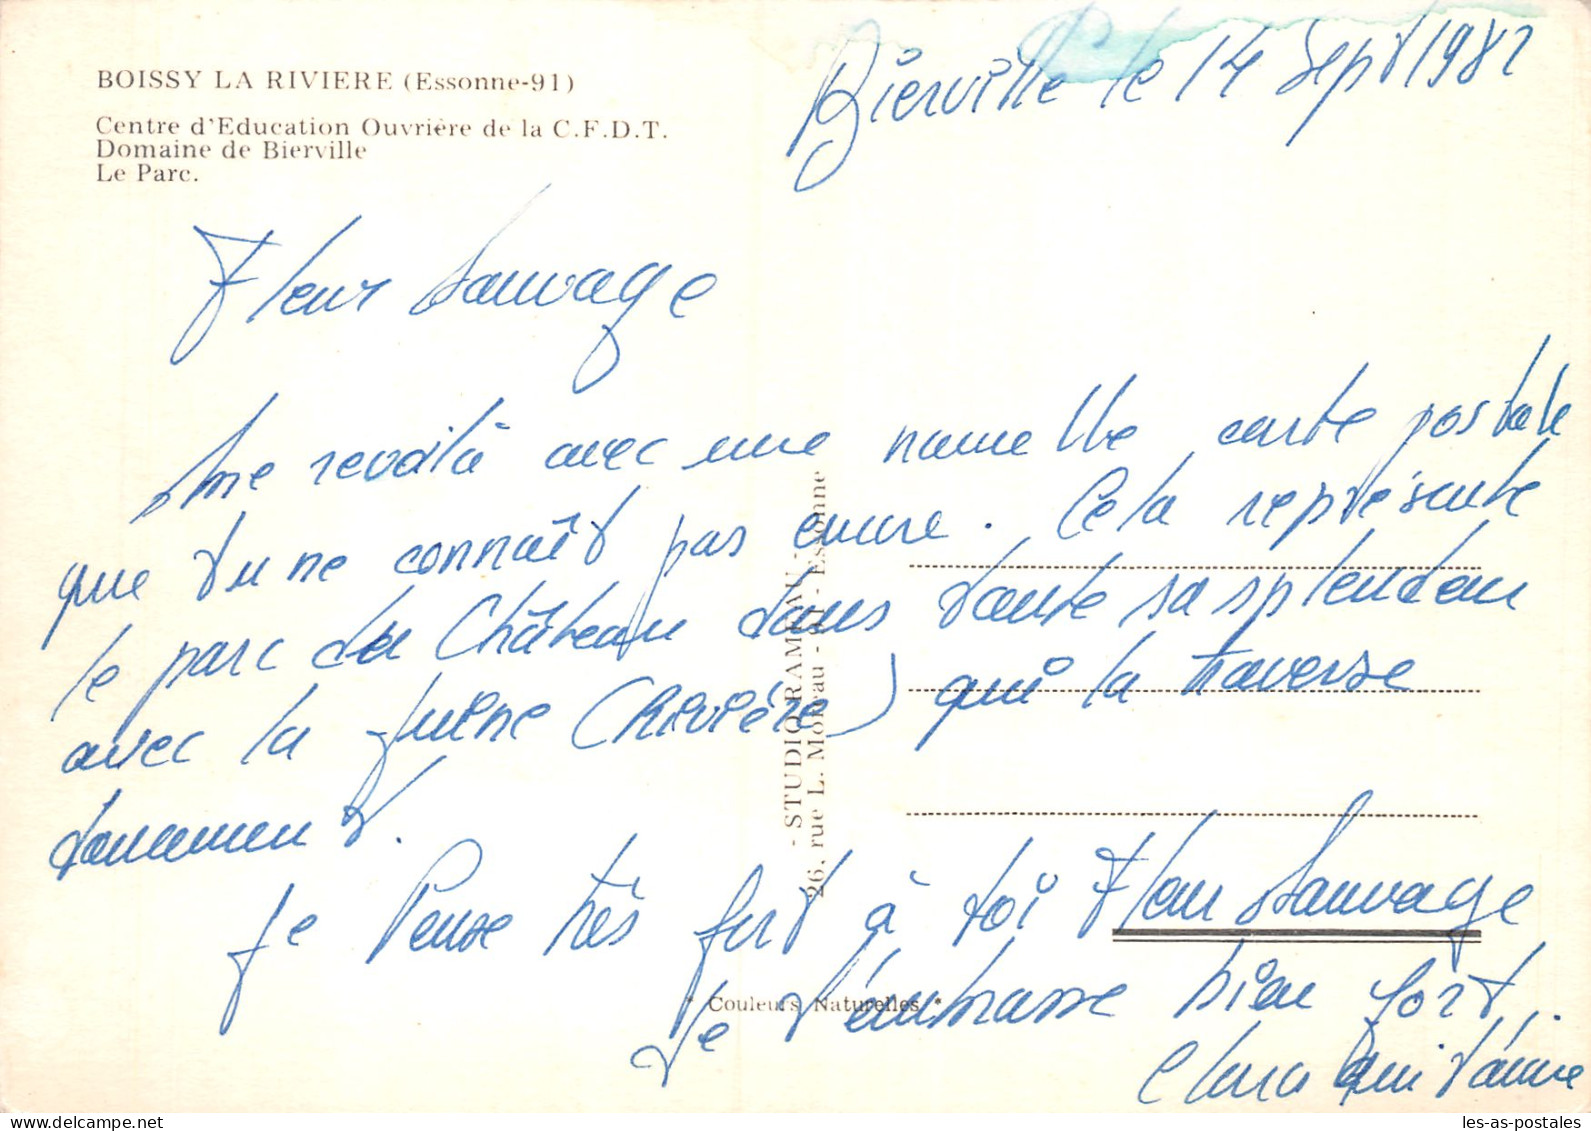 BOISSY LA RIVIERE (Essonne-91)
Centre d'Education Ouvrière de la C.F.D.T.
Domaine de Bierville
Le Parc.
Bierville le 14 Sept 1982
Fleur Sauvage
Me revoilà avec une nouvelle carte postale
que tu ne connaît pas encore. Cela représente
le parc du Château dans toute sa splendeur
avec la Juine (Rivière) qui la traverse
doucement.
Je Pense très fort à toi Fleur Sauvage
Je t'embrasse bien fort.
qui t'aime
- STUDIO RAMEAU -
26, rue L. Moreau - 91 - Essonne
* Couleurs Naturelles *
les-as-postales.com